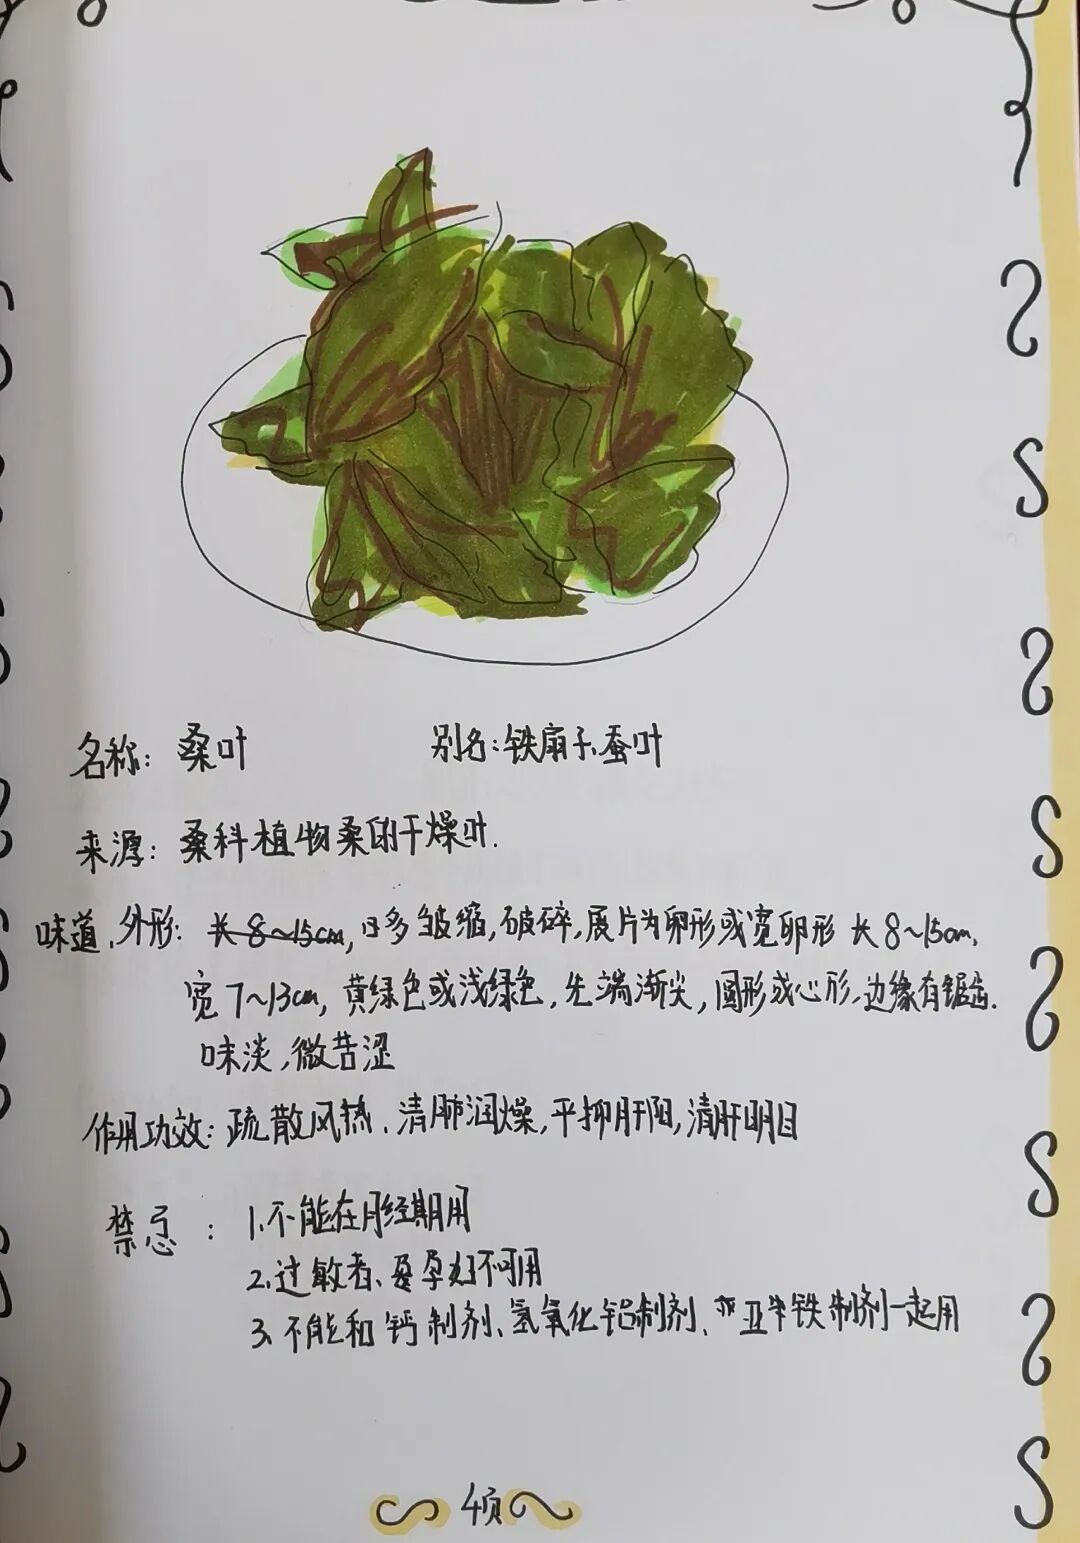 名称：桑叶 别名：铁扇子、蚕叶
来源：桑科植物桑的干燥叶.
味道、外形：长8~15cm,多皱缩,破碎,展片为卵形或宽卵形 长8~15cm,
宽7~13cm,黄绿色或浅绿色,先端渐尖,圆形或心形,边缘有锯齿.
味淡,微苦涩
作用功效：疏散风热、清肺润燥,平抑肝阳,清肝明目
禁忌：1.不能在月经期用
2.过敏者、孕妇不可用
3.不能和钙制剂、氢氧化铝制剂、亚铁制剂一起用
4页